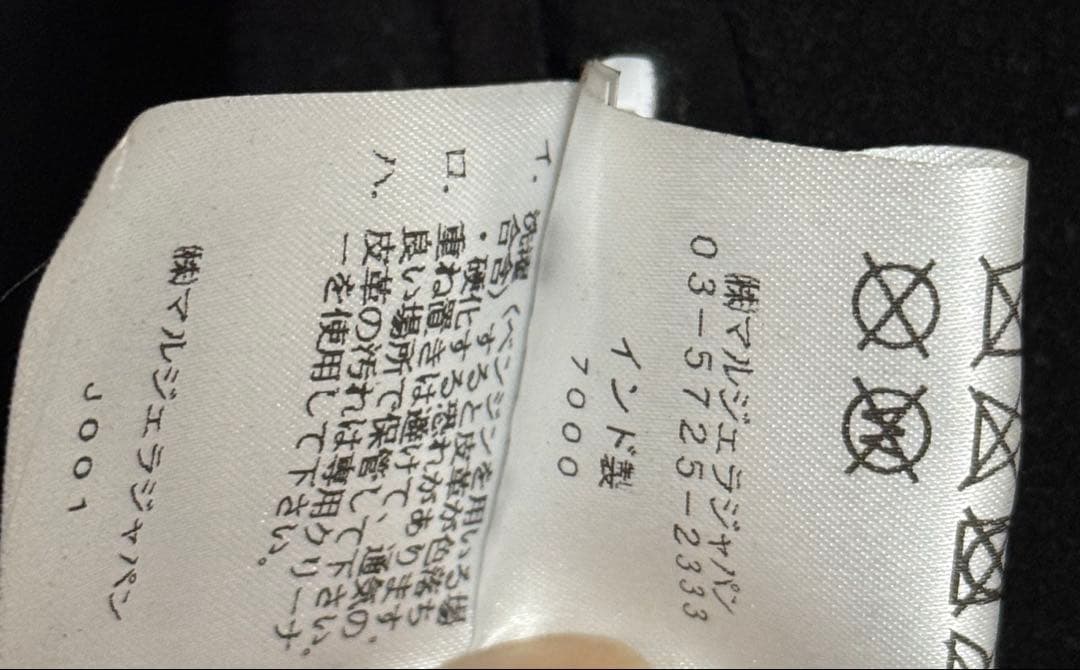 ㈱マルジェラジャパン
03-5725-2333
インド製
7000
イ. 洗濯(ベンジンを用いる場
合含)すると皮革が色落ち
・硬化する恐れがあります。
ロ. 重ね置きは避けて、通気の
良い場所で保管して下さい。
ハ. 皮革の汚れは専用クリーナ
ーを使用して下さい。
㈱マルジェラジャパン
J001